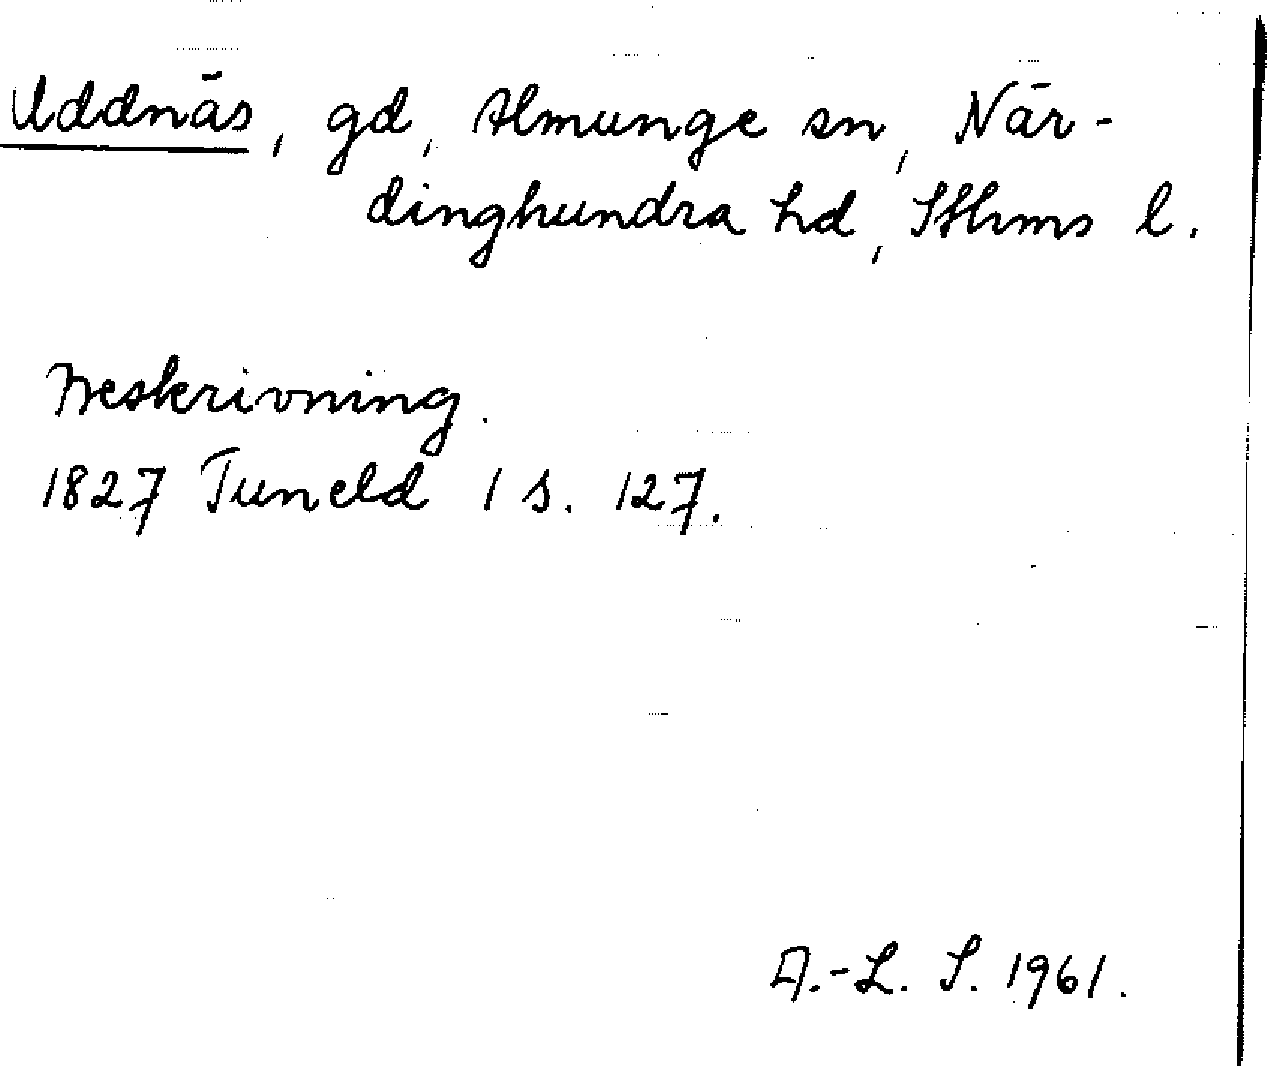 Uddnäs, gd, Almunge sn, När-
dinghundra hd, Sthms l.
Beskrivning.
1827 Tuneld I s. 127.
A.-L. S. 1961.